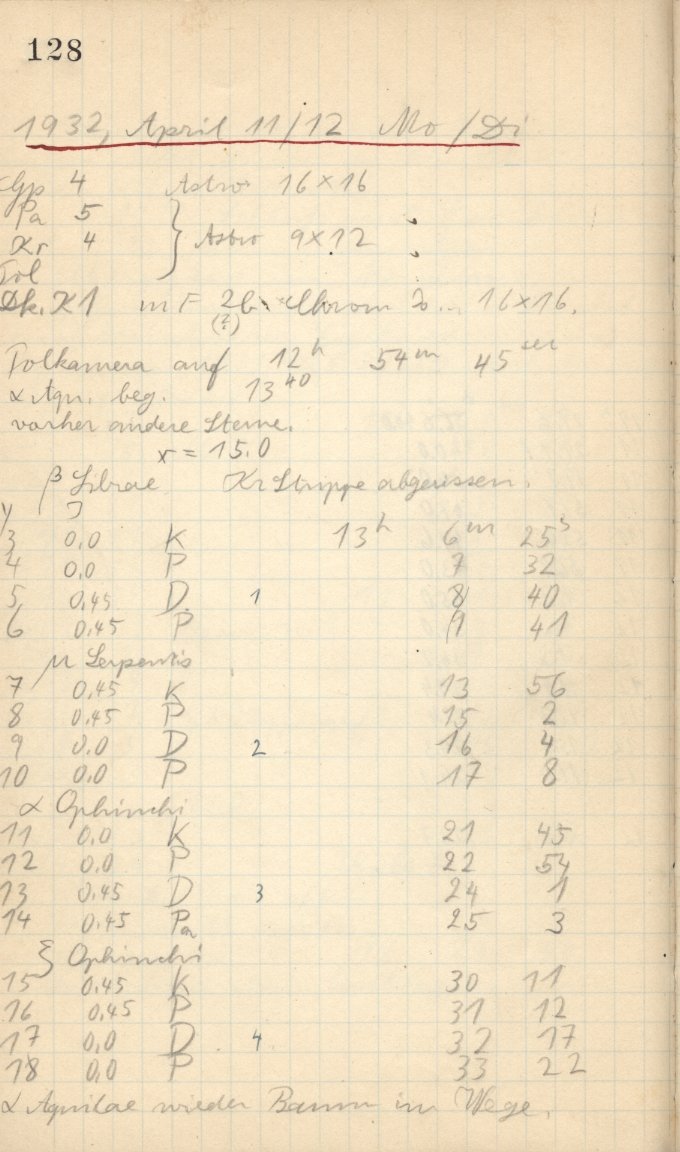 128
1932, April 11/12 Mo/Di
Gp 4 Astro 16×16
Pa 5
Kr 4 } Astro 9×12
Tol
Dk. K1 m F 2b Chrom 16×16.
(?)
Tolkamera auf 12h 54m 45sec
α Aqu. beg. 13 40
vorher andere Sterne.
x = 15.0
β Librae Kr Strippe abgerissen.
y J
3 0,0 K 13h 6m 25s
4 0,0 P 7 32
5 0,45 D. 1 8 40
6 0,45 P 9 41
μ Serpentis
7 0,45 K 13 56
8 0,45 P 15 2
9 0,0 D 2 16 4
10 0,0 P 17 8
α Ophiuchi
11 0,0 K 21 45
12 0,0 P 22 54
13 0,45 D 3 24 1
14 0,45 Pa 25 3
ξ Ophiuchi
15 0,45 K 30 11
16 0,45 P 31 12
17 0,0 D 4 32 17
18 0,0 P 33 22
α Aquilae wieder Baum im Wege.